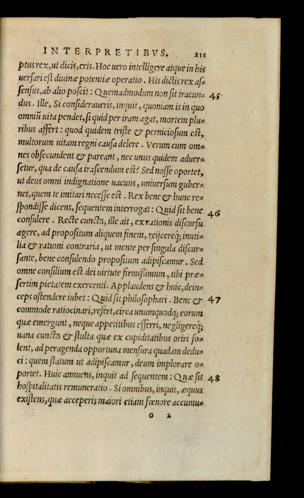 INTERPRETIBVS. 212
ptus rex, ut dicis, eris. Hoc uero intelligere atque in his
uersari est diuinæ potentiæ operatio. His dictis rex as-
sensus, ab alio poscit: Quemadmodum non sit iracun- 45
dus. Ille, Si consideraueris, inquit, quoniam is in quo
omniū uita pendet, si quid per iram agat, mortem plu-
ribus affert: quod quidem triste & perniciosum est,
multorum uitam regni causa delere. Verum cum om-
nes obsecundent & pareant, nec unus quidem aduer-
setur, qua de causa irascendum est? Sed nosse oportet,
ut deus omni indignatione uacuus, uniuersum guber-
net, quem te imitari necesse est. Rex bene & hunc re-
spondisse dicens, sequentem interrogat: Quid sit bene 46
consulere. Recte cuncta, ille ait, ex rationis discursu
agere, ad propositum aliquem finem, reijcereq; inuti-
lia & rationi contraria, ut mente per singula discur-
sante, bene consulendo propositum adipiscamur. Sed
omne consilium est dei uirtute firmissimum, tibi præ-
sertim pietatem exercenti. Applaudens & huic, dein-
ceps ostendere iubet: Quid sit philosophari. Bene & 47
commode ratiocinari, refert, circa unumquodq; eorum
quæ emergunt, neque appetitibus efferri, negligereq;
uana cuncta & stulta quæ ex cupiditatibus oriri so-
lent, ad peragenda opportuna mensura quadam dedu-
ci: quem statum ut adipiscamur, deum implorare o-
portet. Huic annuens, inquit ad sequentem: Quæ sit 48
hospitalitatis remuneratio. Si omnibus, inquit, æquus
existens, quæ acceperis maiori etiam fœnore accumu-
o 2